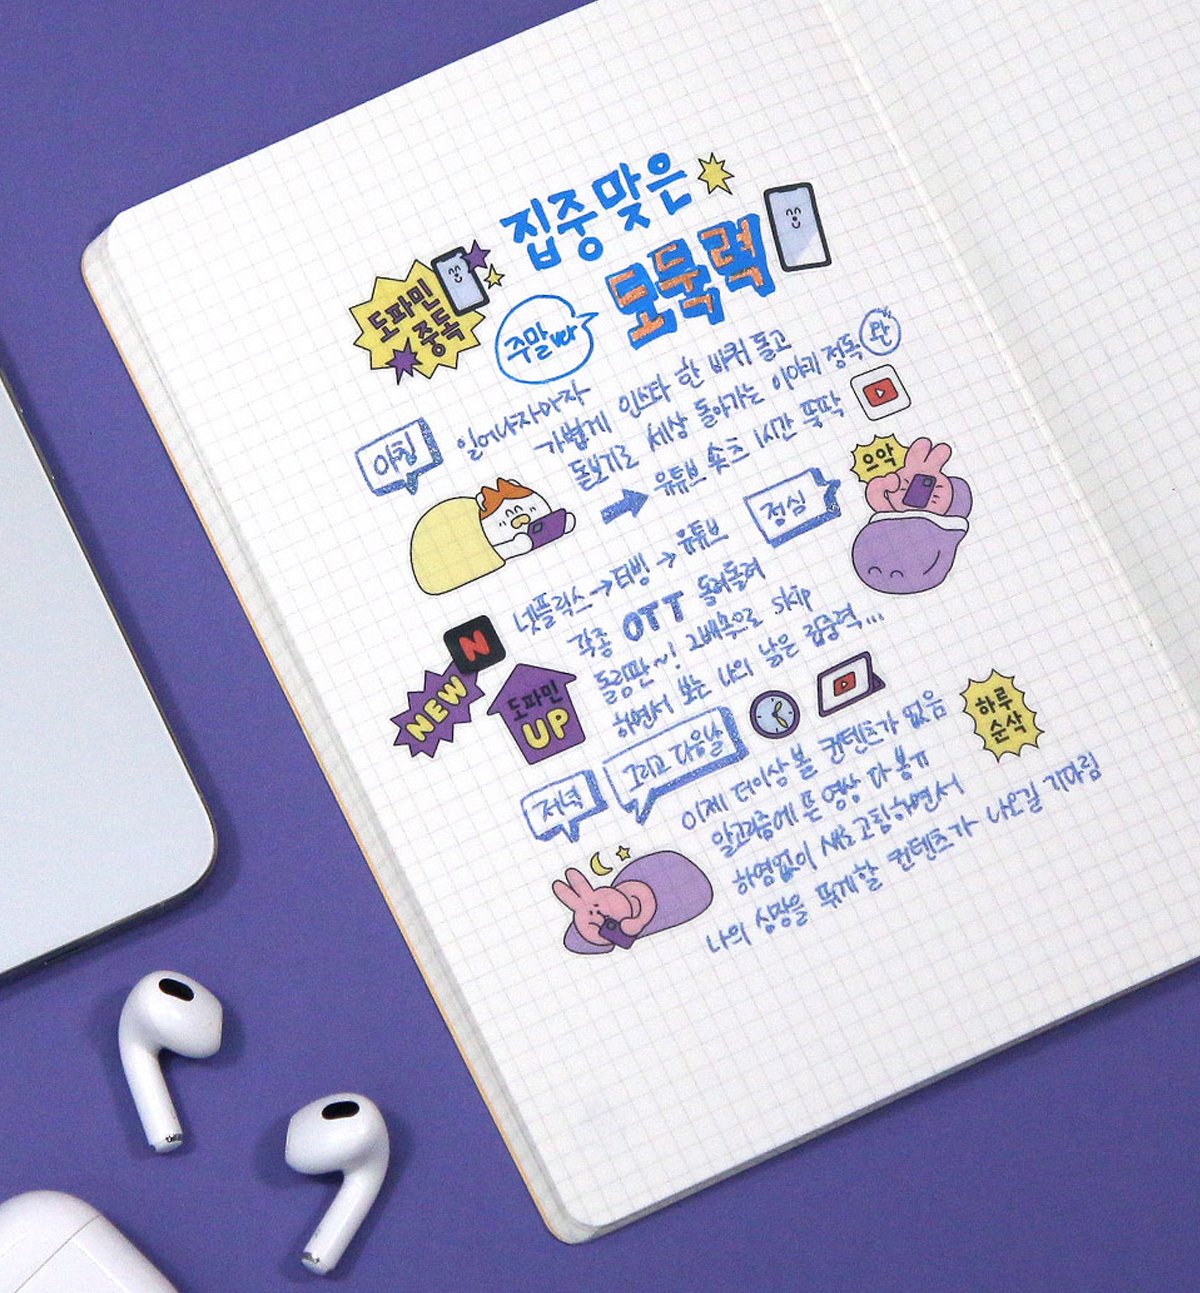 집중맞은
도둑력
도파민
중독
주말ver
아침
일어나자마자
가볍게 인스타 한 바퀴 돌고
돋보기로 세상 돌아가는 이야기 정독 완
유튜브 쇼츠 1시간 뚝딱
으악
점심
넷플릭스→티빙→유튜브
각종 OTT 돌려돌려
돌림판~! 2배속으로 skip
하면서 보는 나의 낡은 집중력...
N
NEW
도파민
UP
하루
순삭
저녁
그리고 다음날
이제 더이상 볼 컨텐츠가 없음
알고리즘에 뜬 영상 다 봄ㅠ
하염없이 새로고침하면서
나의 심장을 뛰게할 컨텐츠가 나오길 기다림